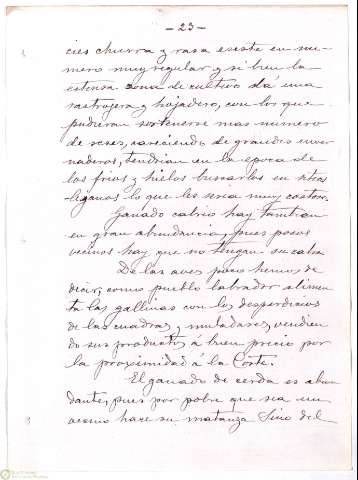 - 23 -
cies churra y rasa existe en nu-
mero muy regular y si bien la
estensa zona de cultivo dá una
rastrojera y hojadero, con los que
pudieran sostenerse mas numero
de reses, careciendo de grandes inver
naderos, tendrian en la epoca de
los frios y hielos buscarlos en
lo que les seria muy costoso.
Ganado cabrio hay tambien
en gran abundancia, pues pocos
vecinos hay que no tengan su cabra
De las aves poco hemos de
decir, como pueblo labrador alimen
ta las gallinas con los desperdicios
de las cuadras y muladares, vendien
do sus productos á buen precio por
la proximidad á la Corte.
El ganado de cerda es abun
dante, pues por pobre que sea un
vecino hace su matanza sino del